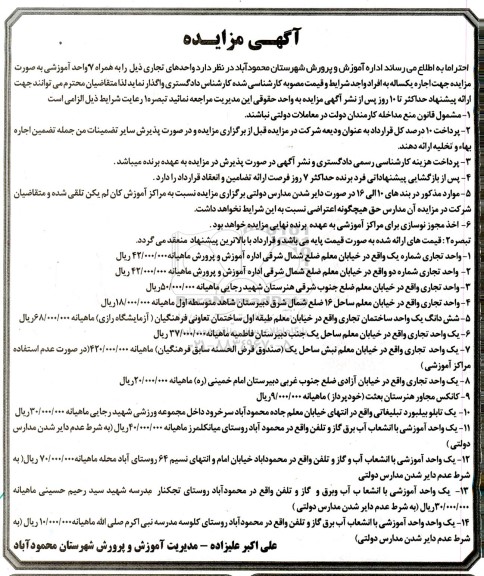 آگهـی مزایـده
احتراما به اطلاع می رساند اداره آموزش و پرورش شهرستان محمودآباد در نظر دارد واحدهای تجاری ذیل را به همراه ۷ واحد آموزشی به صورت
مزایده جهت اجاره یکساله به افراد واجد شرایط و قیمت مصوبه کارشناسی شده کارشناس دادگستری واگذار نماید لذا متقاضیان محترم می توانند جهت
ارائه پیشنهاد حداکثر تا ۱۰ روز پس از نشر آگهی مزایده به واحد حقوقی این مدیریت مراجعه نمائید تبصره۱ رعایت شرایط ذیل الزامی است
۱- مشمول قانون منع مداخله کارمندان دولت در معاملات دولتی نباشند.
۲- پرداخت ۱۰ درصد کل قرارداد به عنوان ودیعه شرکت در مزایده قبل از برگزاری مزایده و در صورت پذیرش سایر تضمینات من جمله تضمین اجاره
بهاء و تخلیه ارائه دهند.
۳- پرداخت هزینه کارشناسی رسمی دادگستری و نشر آگهی در صورت پذیرش در مزایده به عهده برنده میباشد .
۴- پس از بازگشایی پیشنهاداتی فرد برنده حداکثر ۷ روز فرصت ارائه تضامین و انعقاد قرارداد را دارد .
۵- موارد مذکور در بند های ۱۰ الی ۱۶ در صورت دایر شدن مدارس دولتی برگزاری مزایده نسبت به مراکز آموزش کان لم یکن تلقی شده و متقاضیان
شرکت در مزایده آن مدارس حق هیچگونه اعتراضی نسبت به این شرایط نخواهد داشت.
۶- اخذ مجوز نوسازی برای مراکز آموزشی به عهده برنده نهایی مزایده خواهد بود .
تبصره۲: قیمت های ارائه شده به صورت قیمت پایه می باشد و قرارداد با بالاترین پیشنهاد منعقد می گردد.
۱- واحد تجاری شماره یک واقع در خیابان معلم ضلع شمال شرقی اداره آموزش و پرورش ماهیانه ۴۲/۰۰۰/۰۰۰ ریال
۲- واحد تجاری شماره دو واقع در خیابان معلم ضلع شمال شرقی اداره آموزش و پرورش ماهیانه ۴۲/۰۰۰/۰۰۰ ریال
۳- واحد تجاری واقع در خیابان معلم ضلع جنوب شرقی هنرستان شهید رجایی ماهیانه ۵۰/۰۰۰/۰۰۰ریال
۴- واحد تجاری واقع در خیابان معلم ساحل ۱۶ ضلع شمال شرق دبیرستان شاهد متوسطه اول ماهیانه ۱۸/۰۰۰/۰۰۰ریال
۵- شش دانگ یک واحد ساختمان تجاری واقع در خیابان معلم طبقه اول ساختمان تعاونی فرهنگیان ( آزمایشگاه رازی) ماهیانه ۶۸/۰۰۰/۰۰۰ریال
۶- یک واحد تجاری واقع در خیابان معلم ساحل یک جنب دبیرستان فاطمیه ماهیانه ۳۷/۰۰۰/۰۰۰ ریال
۷- یک واحد تجاری واقع در خیابان معلم نبش ساحل یک (صندوق قرض الحسنه سابق فرهنگیان) ماهیانه ۴۲۰/۰۰۰/۰۰۰(در صورت عدم استفاده
مراکز آموزشی )
۸- یک واحد تجاری واقع در خیابان آزادی ضلع جنوب غربی دبیرستان امام خمینی (ره) ماهیانه ۲۰/۰۰۰/۰۰۰ریال
۹- کانکس مجاور هنرستان بعثت (خودپرداز) ماهیانه ۹/۰۰۰/۰۰۰ریال
۱۰- یک تابلو بیلبورد تبلیغاتی واقع در انتهای خیابان معلم جاده محمودآباد سرخرود داخل مجموعه ورزشی شهید رجایی ماهیانه ۳۰/۰۰۰/۰۰۰ریال
۱۱- یک واحد آموزشی با انشعاب آب برق گاز و تلفن واقع در محمود آباد روستای میانکلمرز ماهیانه ۴۰/۰۰۰/۰۰۰ریال (به شرط عدم دایر شدن مدارس
دولتی )
۱۲- یک واحد آموزشی با انشعاب آب و گاز و تلفن واقع در محموداباد خیابان امام و انتهای نسیم ۶۴ روستای آباد محله ماهیانه۷۰/۰۰۰/۰۰۰ ریال( به
شرط عدم دایر شدن مدارس دولتی)
۱۳- یک واحد آموزشی با انشعا ب آب وبرق و گاز و تلفن واقع در محمودآباد روستای تجکنار مدرسه شهید سید رحیم حسینی ماهیانه
۳۰/۰۰۰/۰۰۰ریال(به شرط عدم دایر شدن مدارس دولتی )
۱۴- یک واحد واحد آموزشی با انشعاب آب برق گاز و تلفن واقع در محمودآباد روستای کلوسه مدرسه نبی اکرم صلی الله ماهیانه۱۰/۰۰۰/۰۰۰ ریال (به
شرط عدم دایر شدن مدارس دولتی)
علی اکبر علیزاده - مدیریت آموزش و پرورش شهرستان محمودآباد